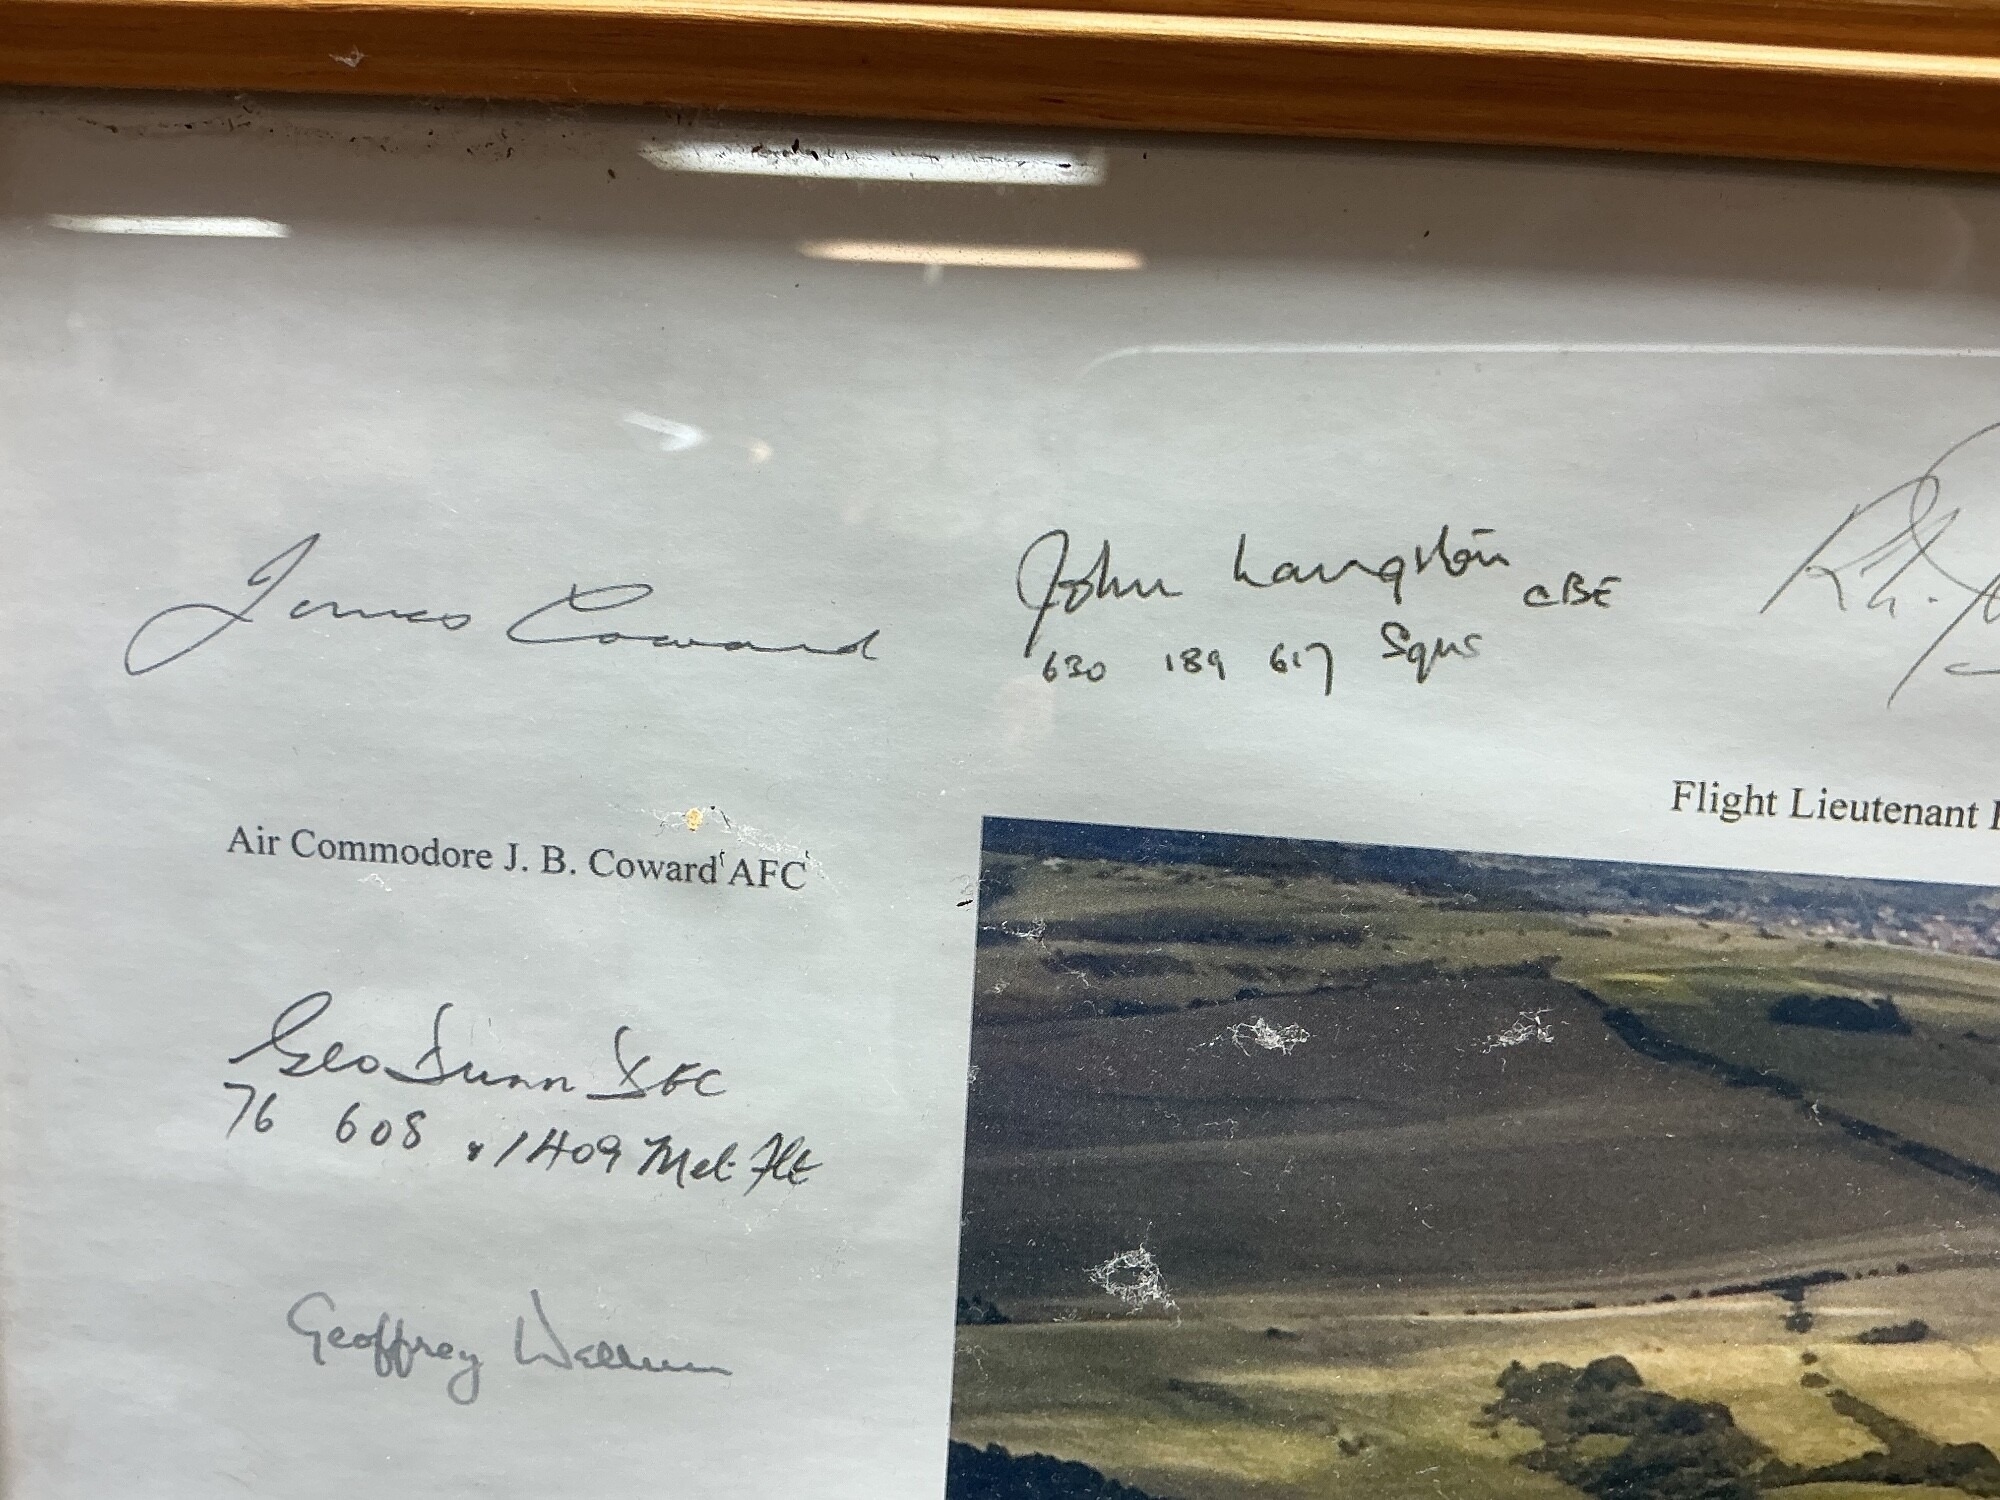 James Coward
John Langston CBE
630 189 617 Sqns
Flight Lieutenant
Air Commodore J. B. Coward AFC
Geo Dunn DFC
76 608 & 1409 Met Flt
Geoffrey Wellum